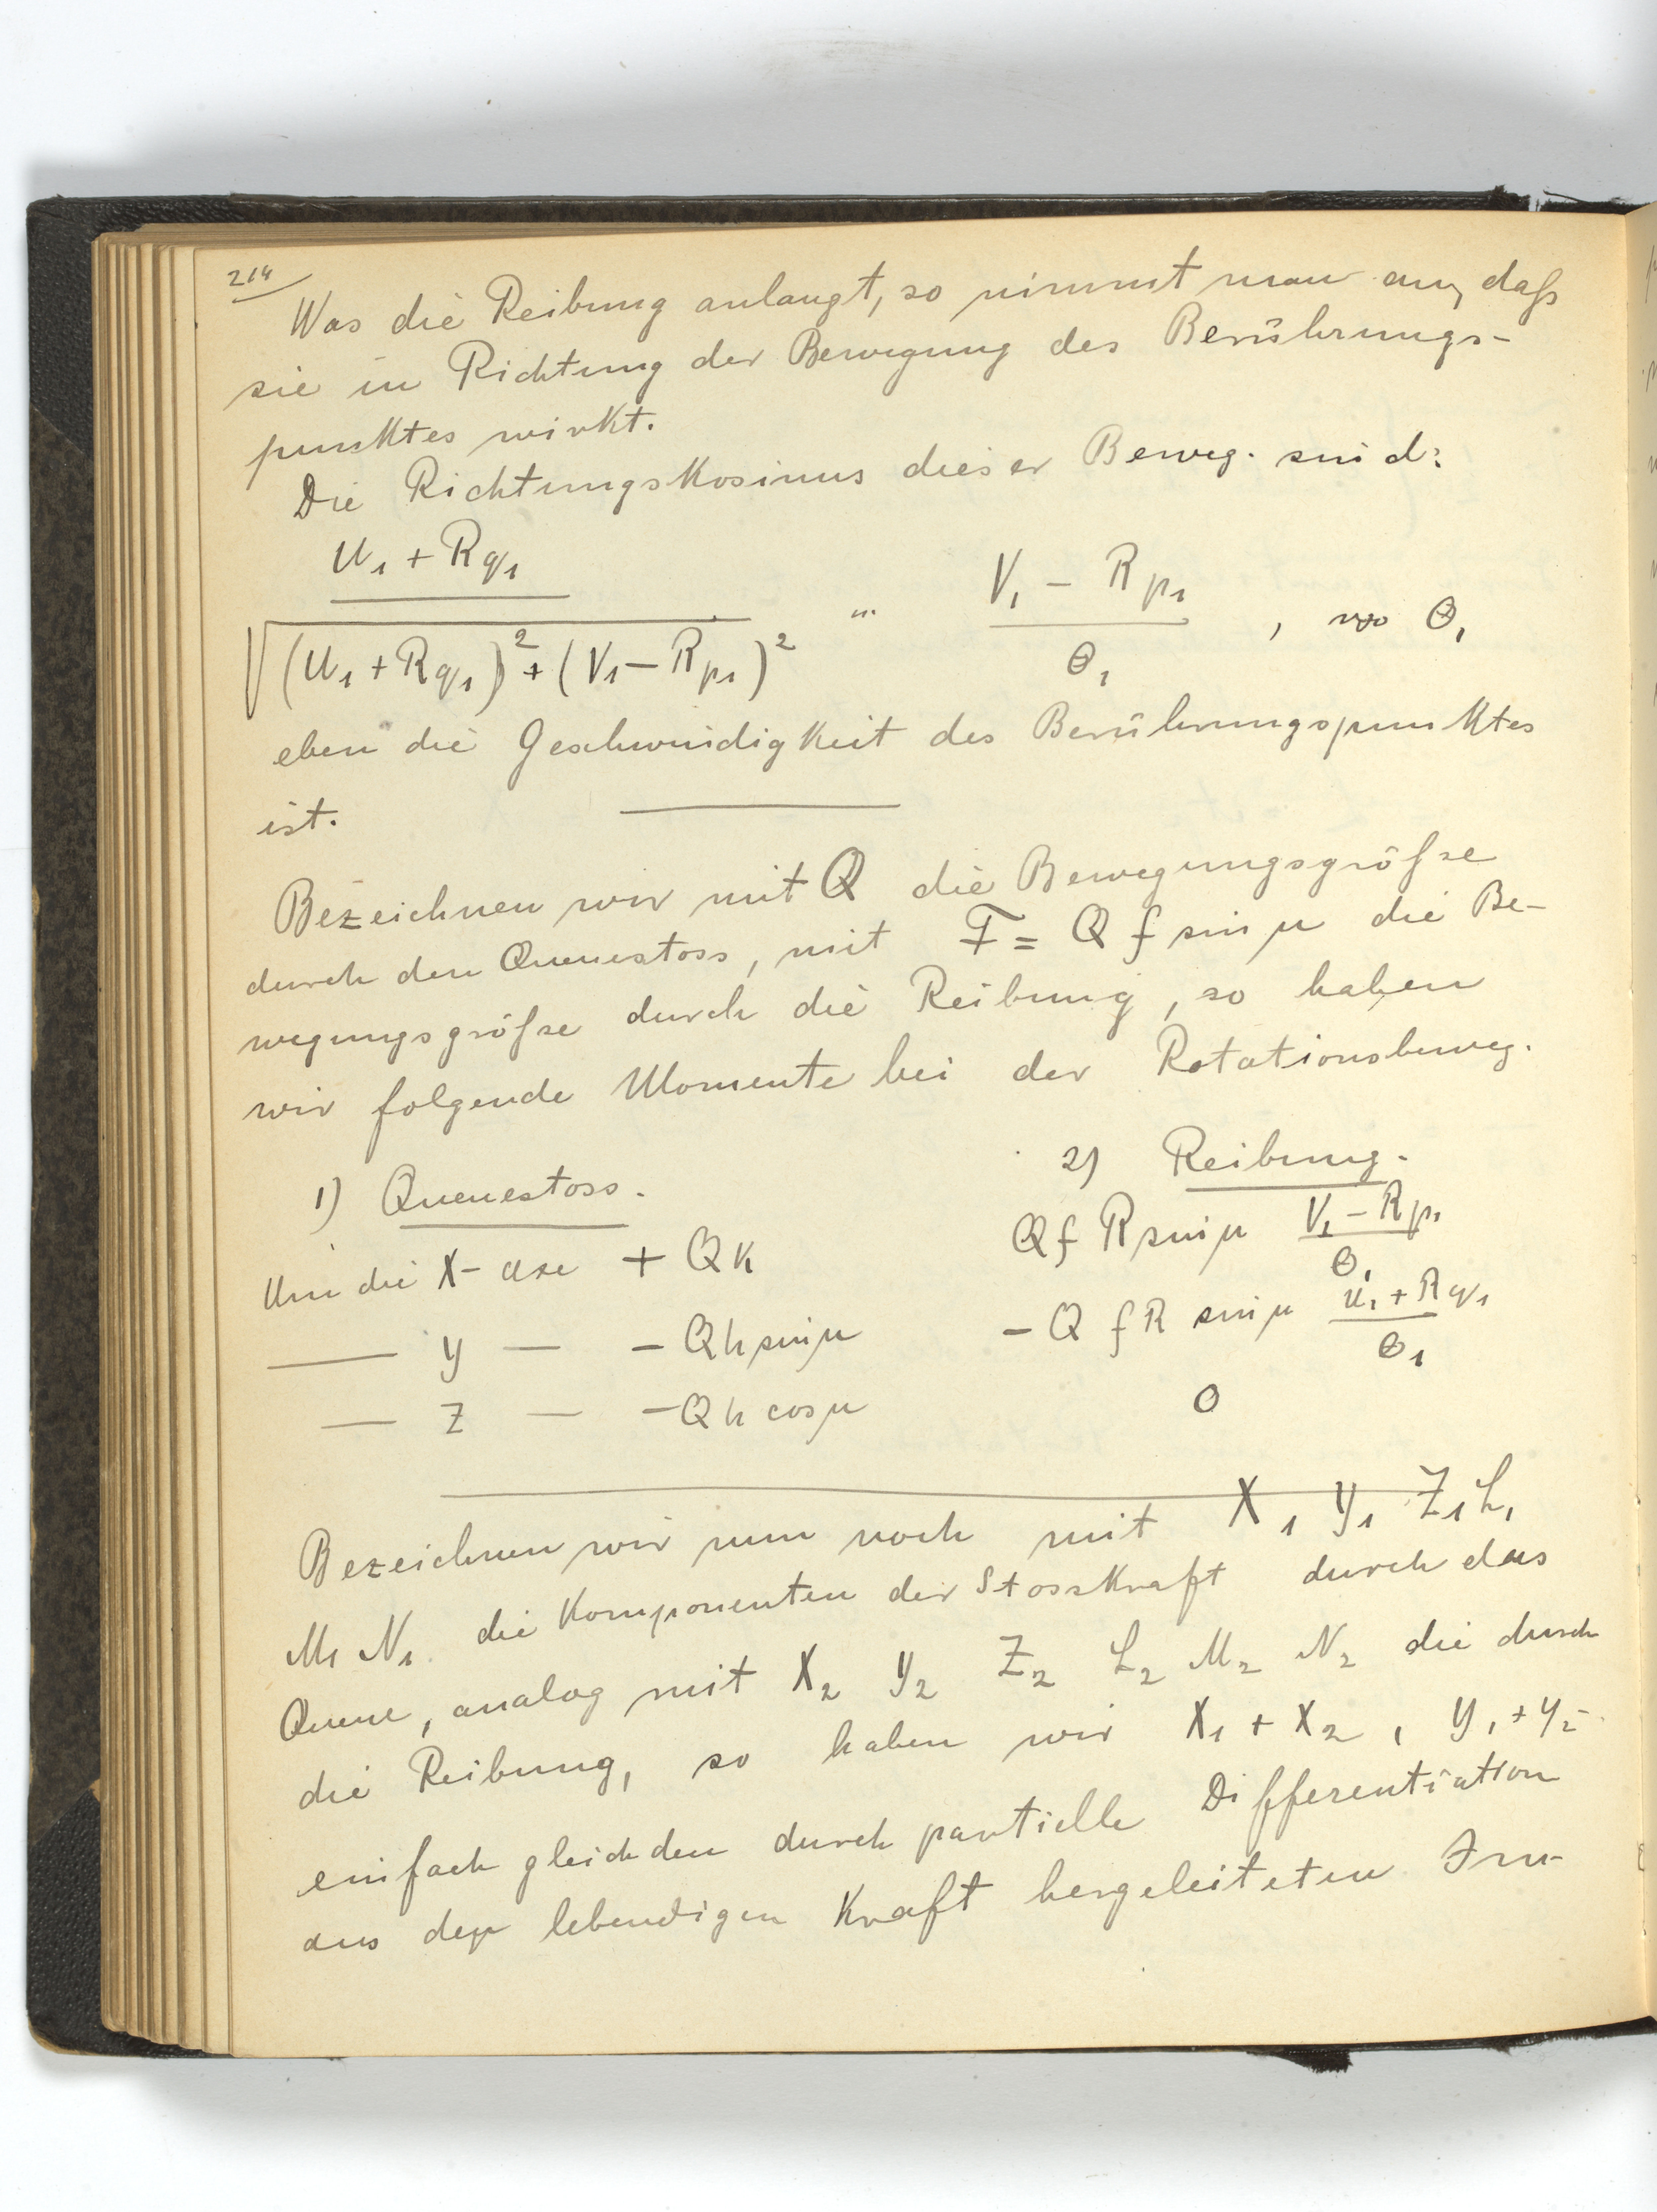 214
Was die Reibung anlangt, so nimmt man an, daß
sie in Richtung der Bewegung des Berührungs-
punktes wirkt.
Die Richtungskosinus dieser Beweg. sind:
u₁ + Rq₁
√(u₁ + Rq₁)² + (V₁ − Rp₁)² ... (V₁ − Rp₁)/Θ₁ , wo Θ₁
eben die Geschwindigkeit des Berührungspunktes
ist.
Bezeichnen wir mit Q die Bewegungsgröße
durch den Queuestoss, mit F = Q f sin μ die Be-
wegungsgröße durch die Reibung, so haben
wir folgende Momente bei der Rotationsbeweg.
1) Queuestoss. 2) Reibung.
Um die X-axe + Qk Q f R sin μ (V₁ − Rp₁)/Θ₁
— y — − Qh sin μ − Q f R sin μ (u₁ + Rq₁)/Θ₁
— z — − Qh cos μ 0
Bezeichnen wir nun noch mit X₁ Y₁ Z₁ L₁
M₁ N₁ die Komponenten der Stosskraft durch das
Queue, analog mit X₂ Y₂ Z₂ L₂ M₂ N₂ die durch
die Reibung, so haben wir X₁ + X₂ , Y₁ + Y₂
einfach gleich den durch partielle Differentiation
aus der lebendigen Kraft hergeleiteten Im-